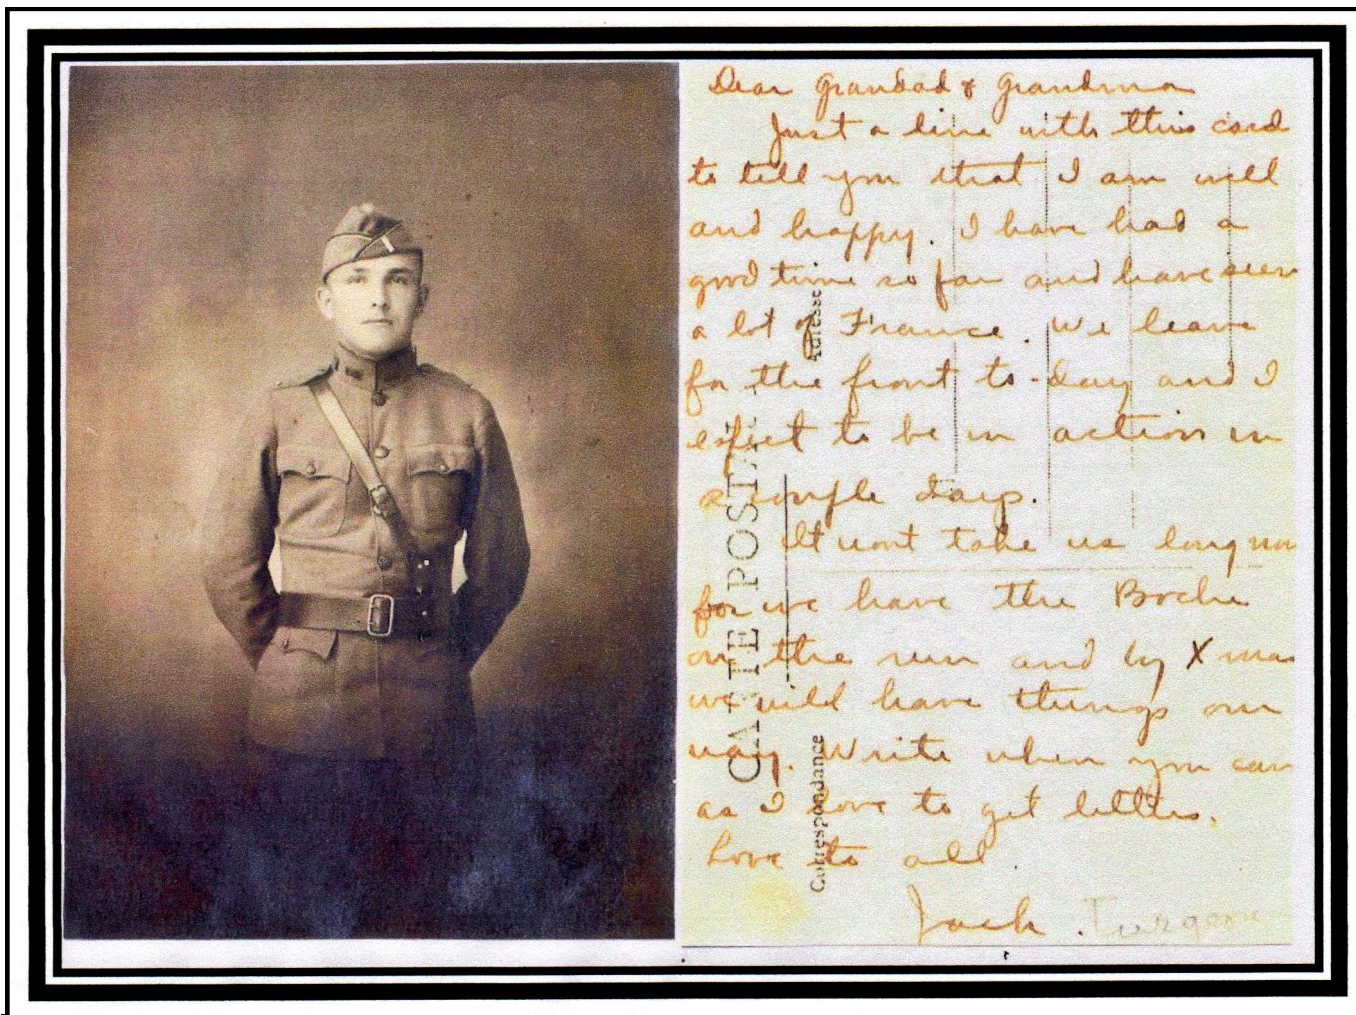 Dear Grandad & Grandma
Just a line with this card
to tell you that I am well
and happy. I have had a
good time so far and have seen
a lot of France. We leave
for the front to-day and I
expect to be in action in
a couple days.
It wont take us long now
for we have the Boche
on the run and by Xmas
we will have things our
way. Write when you can
as I love to get letters.
Love to all.
Jack. Turgeon
CARTE POSTALE
Correspondance
Adresse